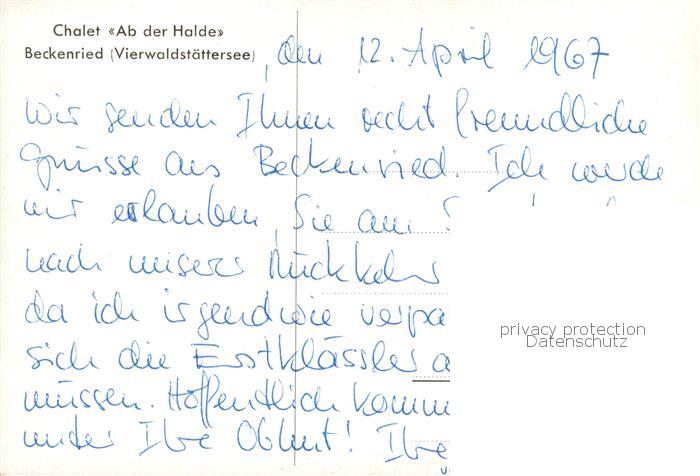 Chalet «Ab der Halde»
Beckenried (Vierwaldstättersee)
, den 12. April 1967
Wir senden Ihnen recht freundliche
Grüsse aus Beckenried. Ich werde
mir erlauben, Sie am
nach unserer Rückkehr
da ich irgendwie verpa
sich die Erstklässler a
müssen. Hoffentlich komm
unter Ihre Obhut! Ihre
privacy protection
Datenschutz